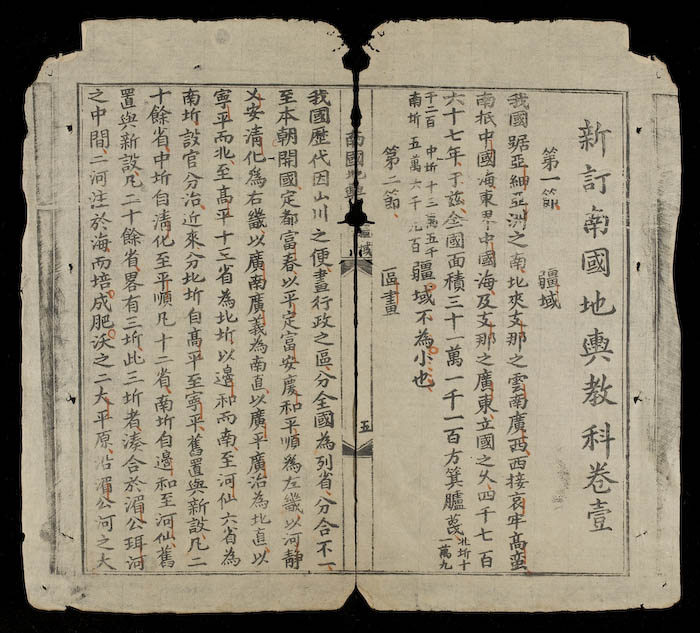 新訂南國地輿教科卷壹
第一節 疆域
我國踞亞細亞洲之南北夾支那之雲南廣西西接哀牢高蠻
南抵中國海東界中國海及支那之廣東立國之久四千七百
六十七年于茲全國面積三十一萬一千一百方箕臚蓂北圻十一萬九
千二百中圻十三萬五千南圻五萬六千九百疆域不為小也
第二節 區畫
南國地輿 疆域 五
我國歷代因山川之便畫行政之區分全國為列省分合不一
至本朝開國定都富春以平定富安慶和平順為左畿以河靜
乂安清化為右畿以廣南廣義為南直以廣平廣治為北直以
寧平而北至高平十三省為北圻以邊和而南至河仙六省為
南圻設官分治近來分北圻自高平至寧平舊置與新設凡二
十餘省中圻自清化至平順凡十二省南圻自邊和至河仙舊
置與新設凡二十餘省畧有三圻此三圻者湊合於湄公珥河
之中間二河注於海而培成肥沃之二大平原沿湄公河之大